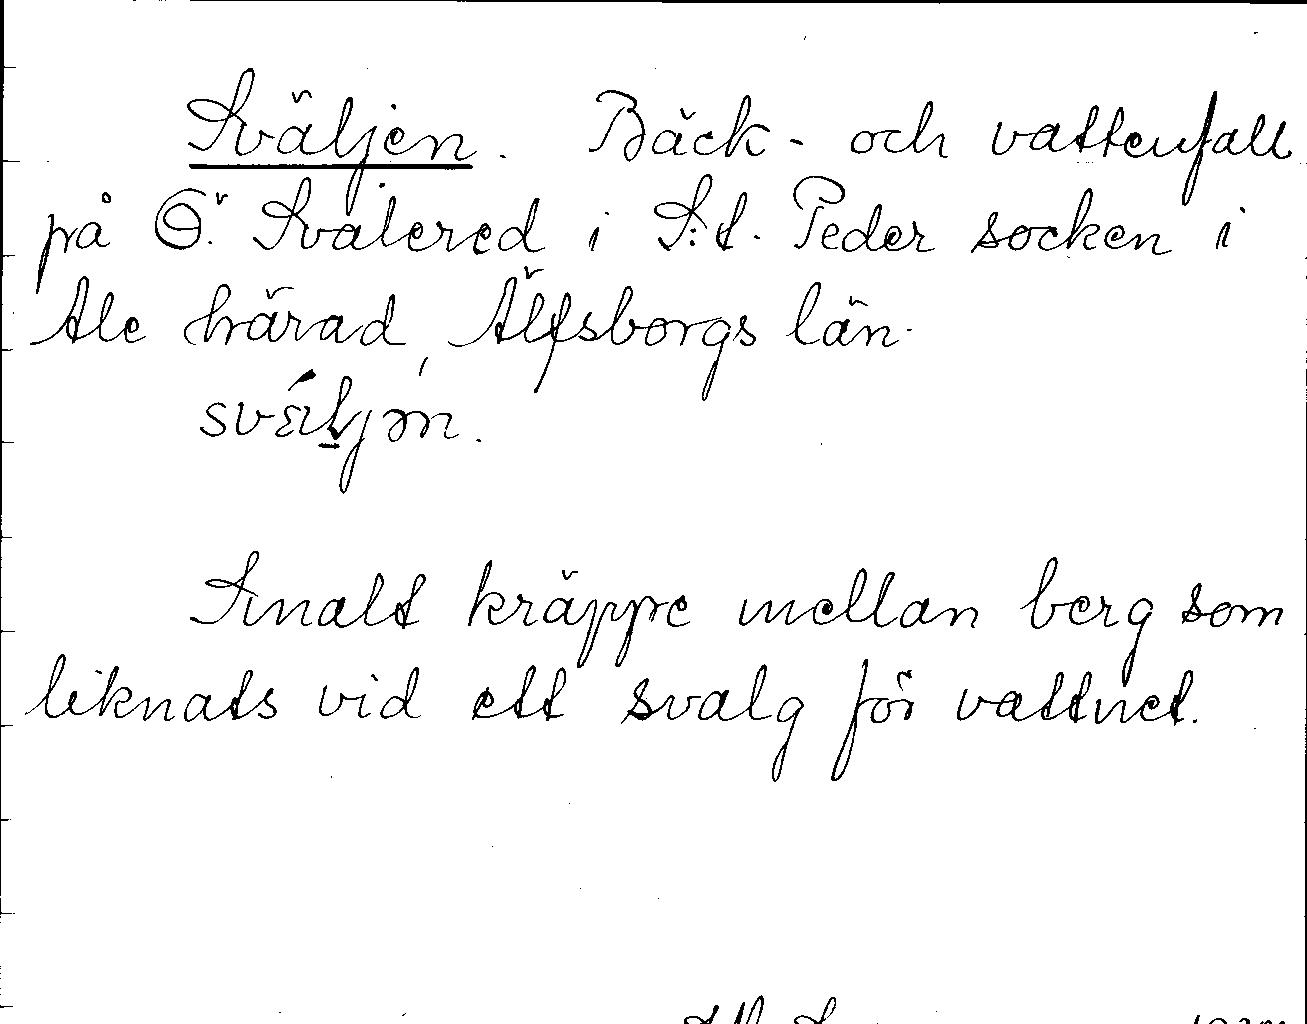 Sväljen. Bäck- och vattenfall
på Ö. Svalered i S:t. Peder socken i
Ale härad, Älfsborgs län.
Smalt kräppe mellan berg som
liknats vid ett svalg för vattnet.